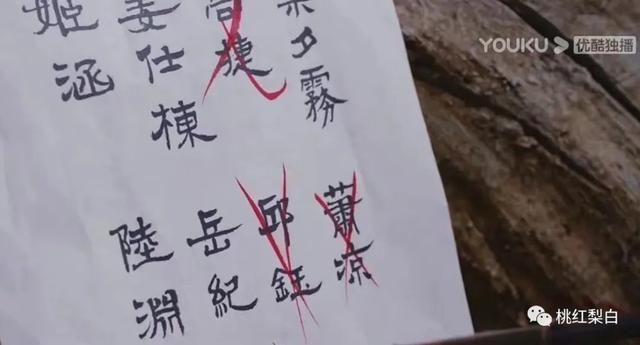 YOUKU 优酷独播
夕霧
捷
姜仕棟
姬涵
蕭凉
邱鈺
岳紀
陸淵
桃红梨白